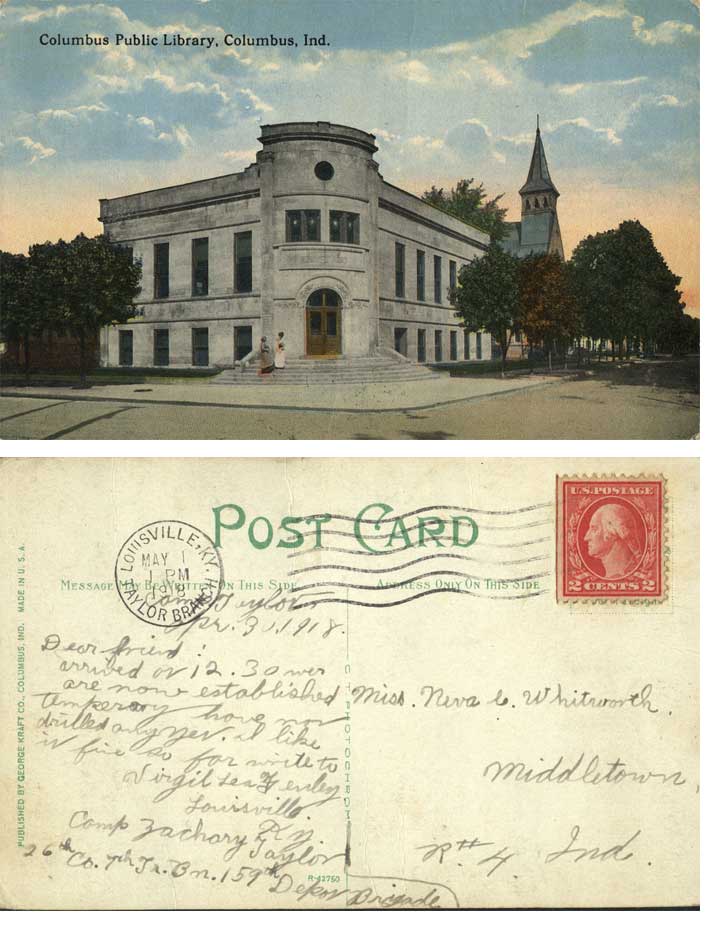 Columbus Public Library, Columbus, Ind.
POST CARD
LOUISVILLE. KY.
MAY 1
1 PM
1918
TAYLOR BRANCH
U.S. POSTAGE
2 CENTS 2
MESSAGE MAY BE WRITTEN ON THIS SIDE
ADDRESS ONLY ON THIS SIDE
Camp Taylor
Apr. 30, 1918.
Dear friend:
arrived at 12.30
are now established
temperary have not
drilled any yet. I like
it fine so far write to
Virgil
Louisville.
Camp Zachary Ky.
Taylor
26th Co. 7th Tr. Bn. 159th Depot Brigade
Miss. Neva C. Whitworth.
Middletown,
R# 4. Ind.
PUBLISHED BY GEORGE KRAFT CO., COLUMBUS, IND. MADE IN U.S.A.
R-42750